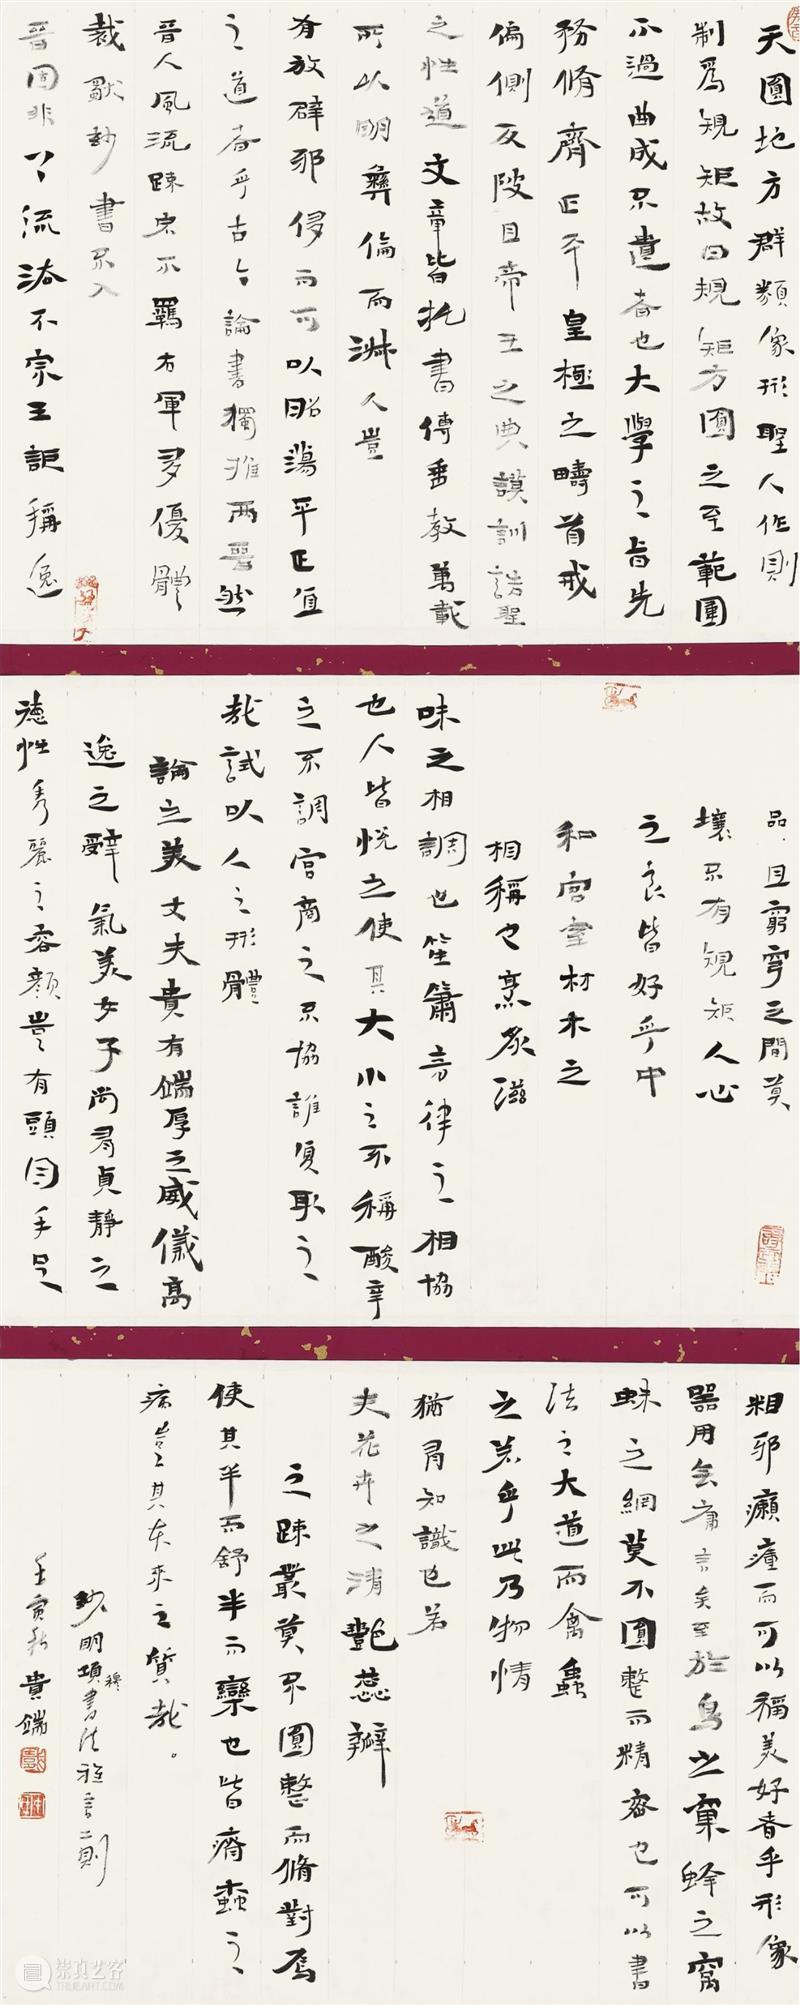 天圓地方群類像形聖人作則
制爲規矩故曰規矩方圓之至範圍
不過曲成不遺者也大學之旨先
務脩齊正平皇極之疇首戒
偏側反陂且帝王之典謨訓誥聖
之性道文章皆托書傳垂教萬載
所以明彝倫而淑人豈
有放辟邪侈而可以昭蕩平正直
之道者乎古今論書獨推兩晉然
晉人風流疎宕不羈右軍多優體
裁獻妙書不入
晉固非流不宗王詎稱逸
品且窮穹之間莫
壤不有規矩人心
之良皆好乎中
和宮室材木之
相稱也烹炙滋
味之相調也笙簫音律之相協
也人皆悅之使其大小之不稱酸辛
之不調宮商之不協誰復取之
哉試以人之形體
論之美丈夫貴有端厚之威儀高
逸之辭氣美女子尚有貞靜之
德性秀麗之容顏豈有頭目手足
粗邪癩瘇而可以稱美好者乎形像
器用無庸言矣至於鳥之窠蜂之窩
蛛之網莫不圓整而精密也可以書
法之大道而禽蟲
之若乎此乃物情
猶有知識也若
夫花卉之清艷蕊瓣
之疎叢莫不圓整而脩對焉
使其半而舒半而欒也皆瘠蠹之
病豈其本來之質哉。
抄明項穆書法雅言二則
壬寅秋貴端
崇真艺客